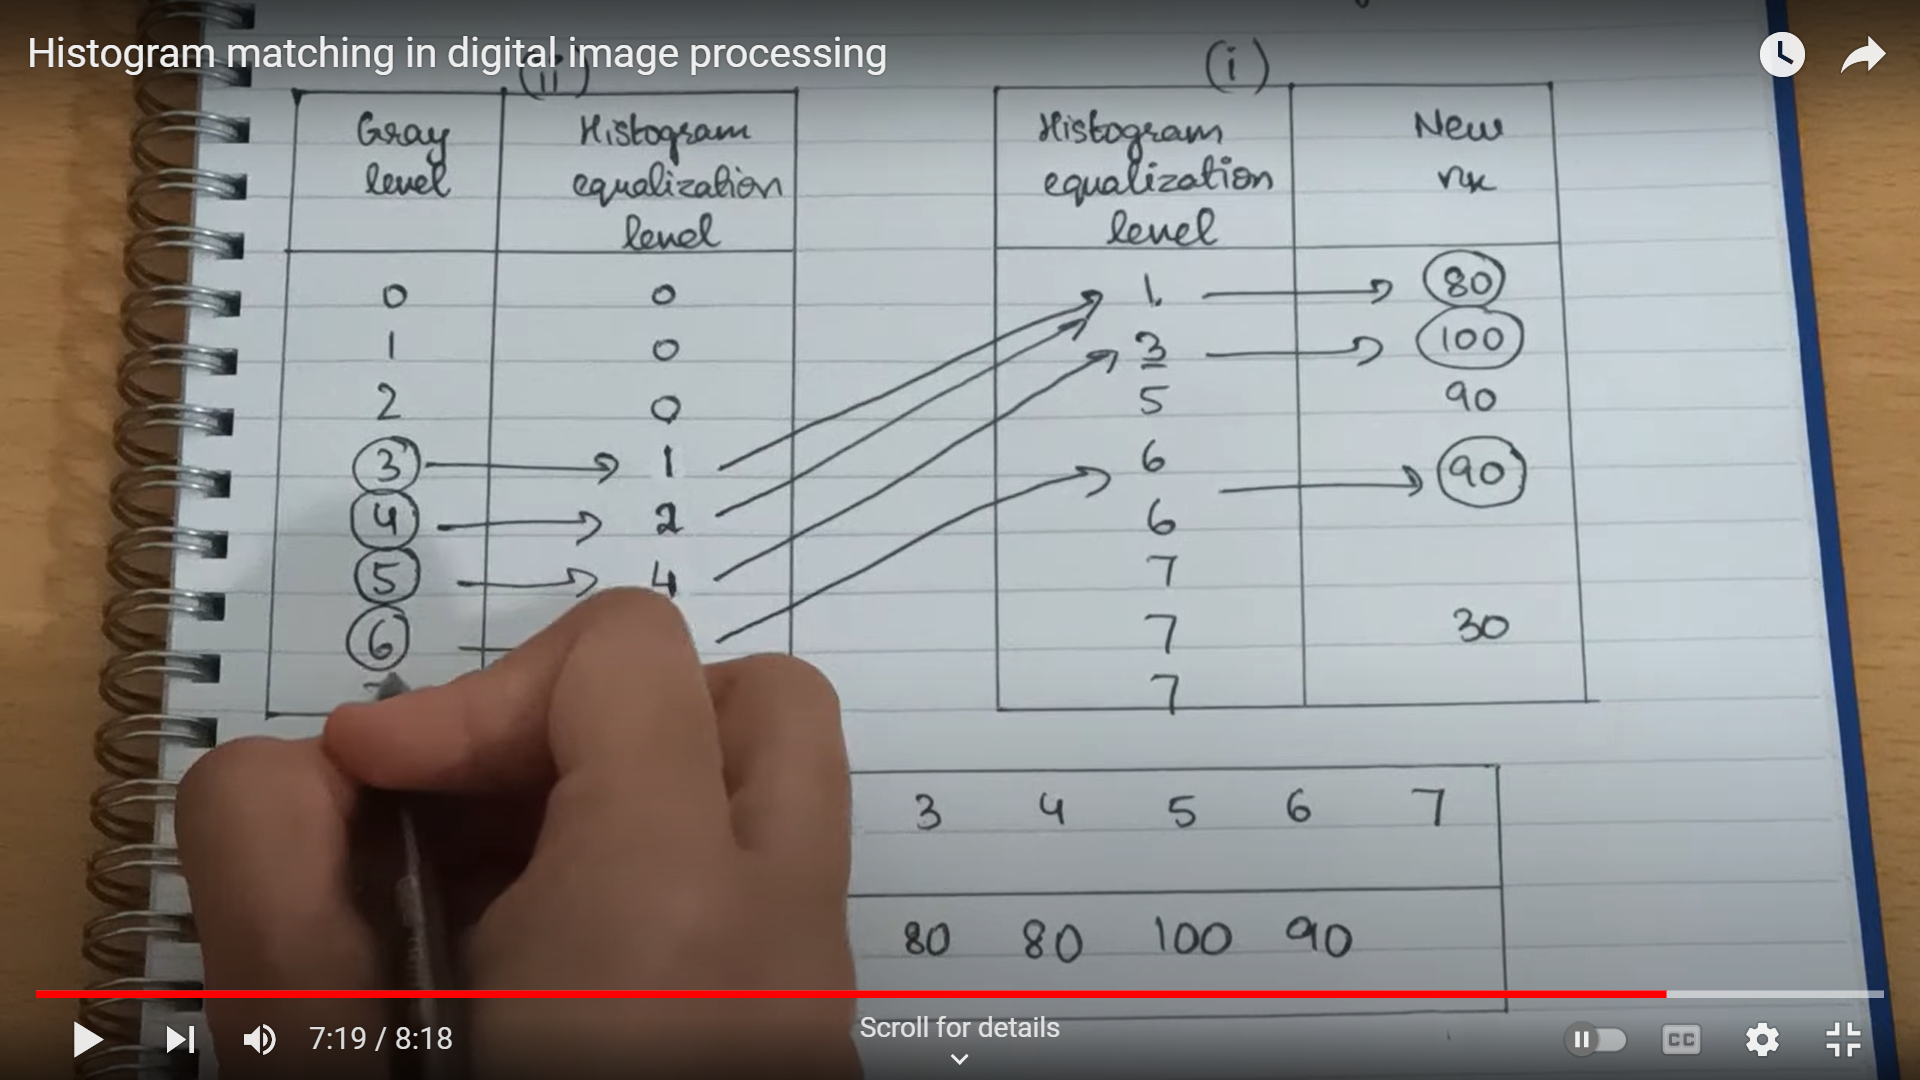 Histogram matching in digital image processing
(ii)
(i)
Gray level
Histogram equalization level
0 0
1 0
2 0
3 1
4 2
5 4
6
Histogram equalization level
New nk
1. 80
3 100
5 90
6 90
6
7
7 30
7
3 4 5 6 7
80 80 100 90
7:19 / 8:18
Scroll for details
CC